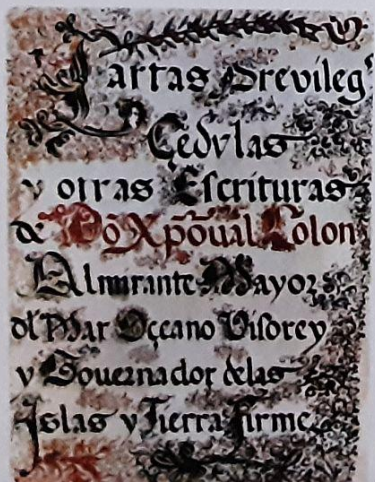 Cartas Previleg⁹
Çedvlas
y otras Escrituras
de Do Xp̄oual Colon
Almirante Mayor
dl Mar Oçeano Visorey
y Gouernador delas
Islas y Tierra firme